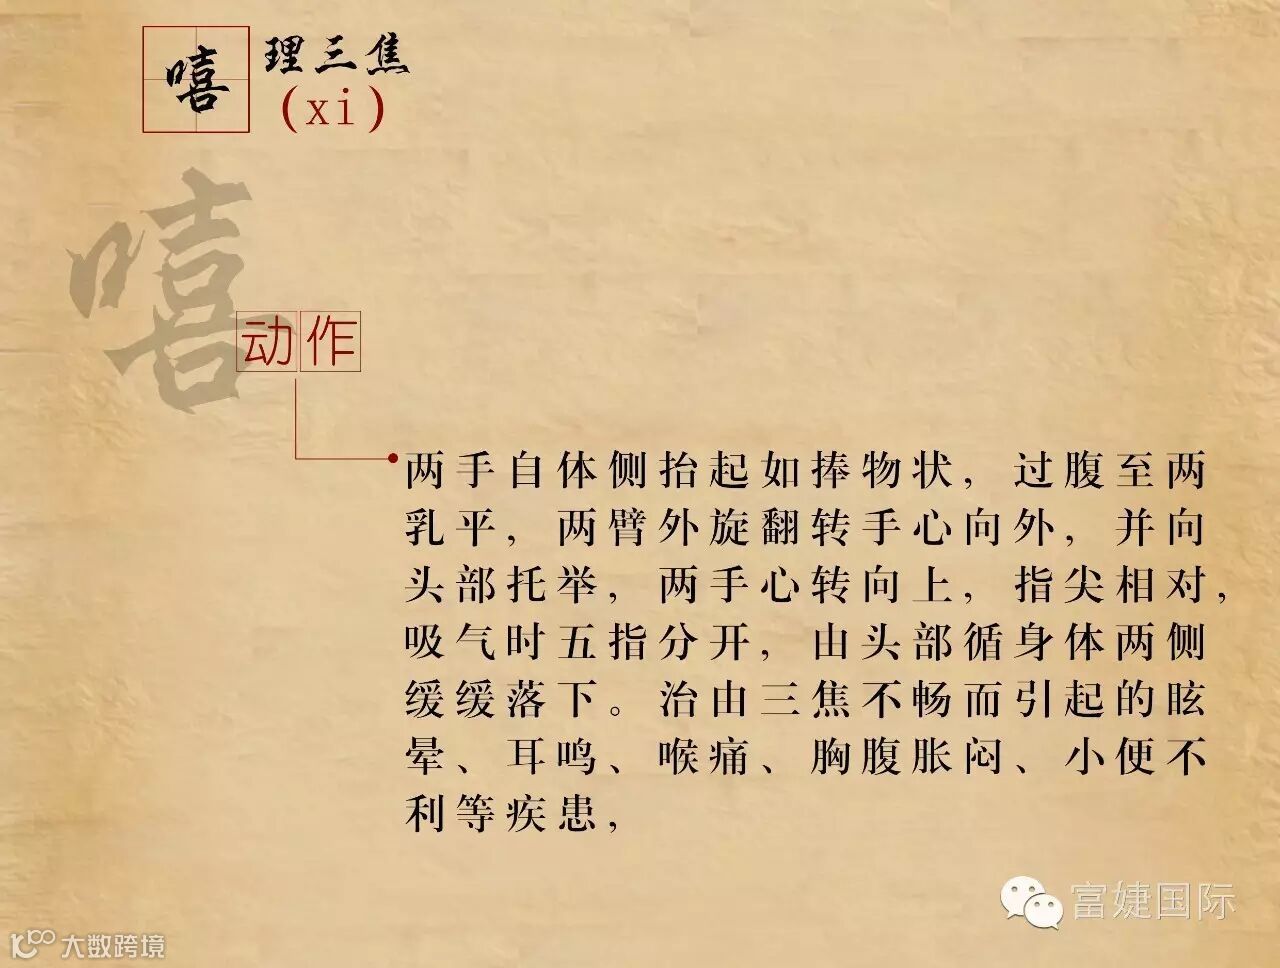 嘻
理三焦
(xi)
嘻
动作
两手自体侧抬起如捧物状，过腹至两
乳平，两臂外旋翻转手心向外，并向
头部托举，两手心转向上，指尖相对，
吸气时五指分开，由头部循身体两侧
缓缓落下。治由三焦不畅而引起的眩
晕、耳鸣、喉痛、胸腹胀闷、小便不
利等疾患，
富婕国际
大数跨境